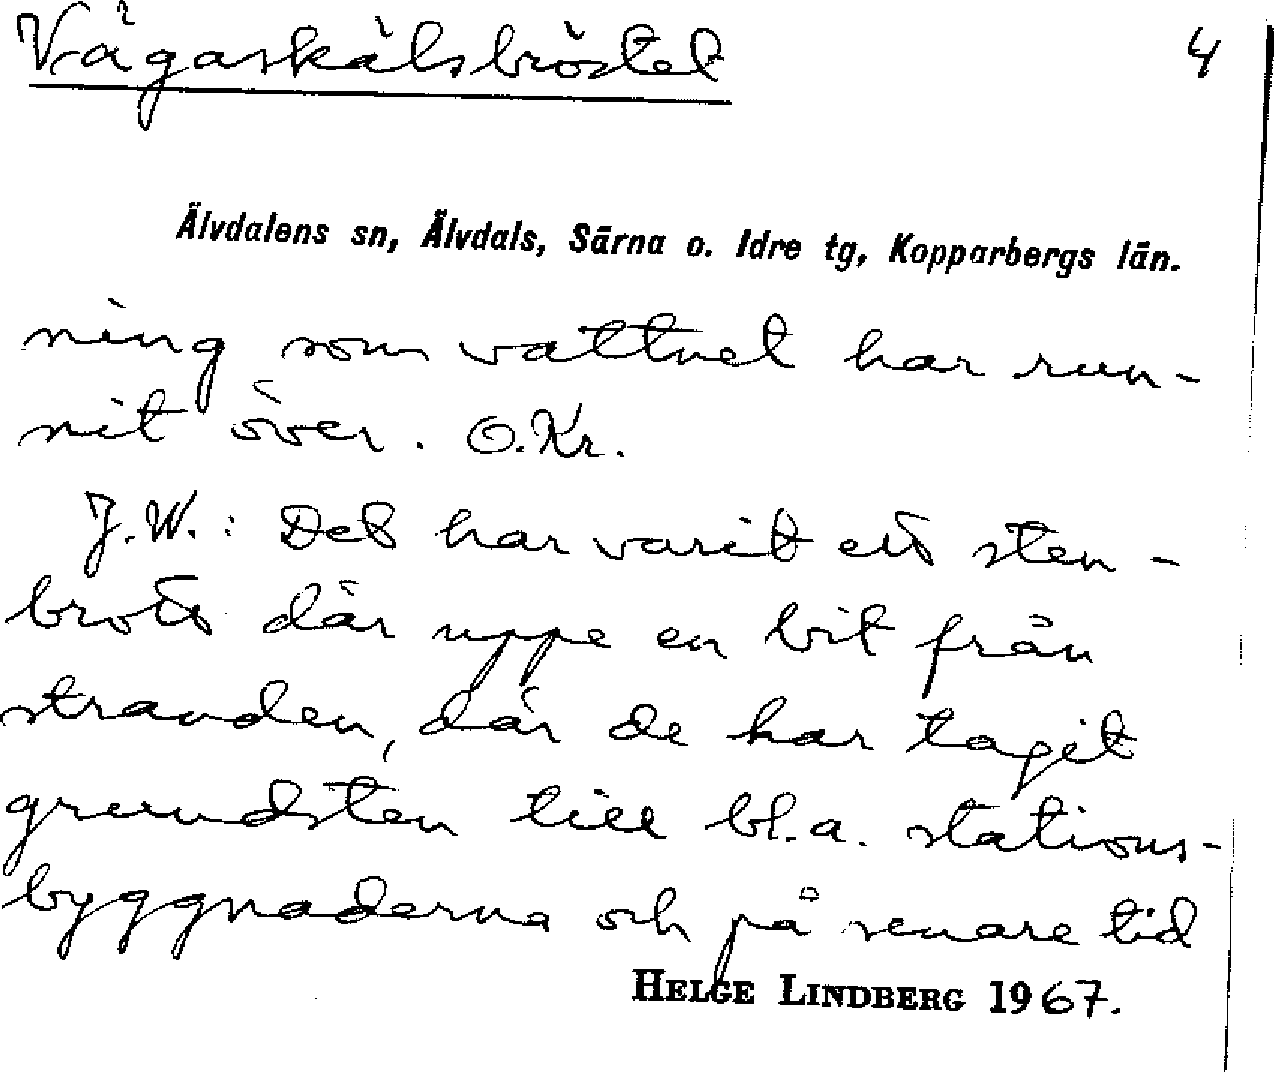 Vågaskälsbröstet 4
Älvdalens sn, Älvdals, Särna o. Idre tg, Kopparbergs län.
ning som vattnet har run-
nit över. O.Kr.
J.W.: Det har varit ett sten-
brott där uppe en bit från
stranden, där de har tagit
grundsten till bl.a. stations-
byggnaderna och på senare tid
HELGE LINDBERG 1967.